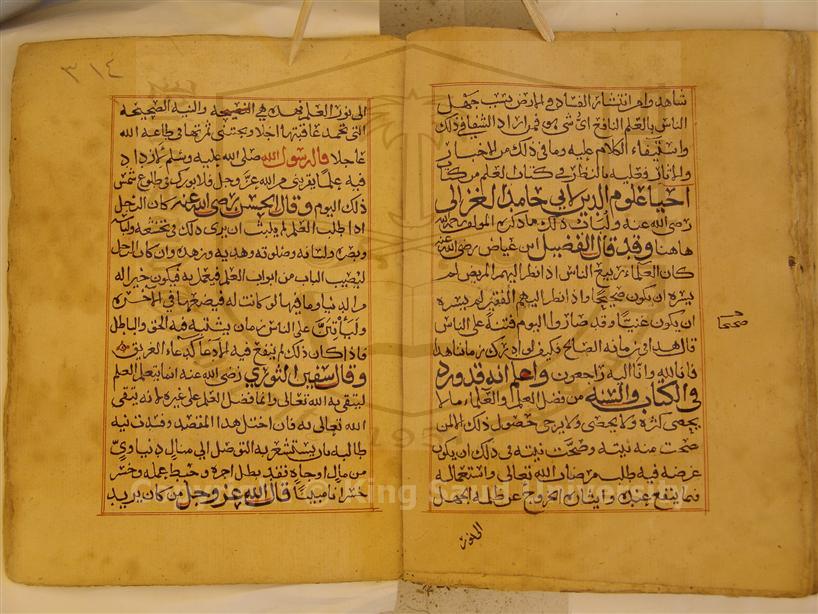 شاهد وام انتشار الفساد في الارض بسبب جهل
الناس بالعلم النافع اي شيء هو فمن اراد الشفا في ذلك
واستيفاء الكلام عليه وما في ذلك من الاخبار
والاثار فعليه بالنظر في كتاب العلم من كتاب
احيا علوم الدين لابي حامد الغزالي
رضي الله عنه ولباب ذلك ما ذكره المولف رحمه الله
هاهنا وقد قال الفضيل ابن عياض رضي الله عنه
كان العلماء ربيع الناس اذا نظر اليهم المريض لم
يسره ان يكون صحيحا واذا نظر اليهم الفقير لم يسره
ان يكون غنيا وقد صاروا اليوم فتنة على الناس
قال هذا في زمانه الصالح فكيف لو ادرك زماننا هذا
فانا لله وانا اليه راجعون واعلم انه قد ورد
في الكتاب والسنه من فضل العلم والعلماء ما لا
يحصى كثره ولا يخفى ولا يرجى حصول ذلك الا لمن
صحت منه نيته وصحت نيته في ذلك ان يكون
غرضه فيه طلب مرضات الله تعالى واستعماله
فيما ينفع عنده وايثار الخروج عن ظلمة الجهل
الى نور
صحيحا
٣١٤
الى نور العلم فهذه هي النصيحه والنيه الصحيحه
التي تحمد عاقبتها اجلا ويجتنى ثمرتها في طاعه الله
عاجلا قال رسول الله صلى الله عليه وسلم لا ازداد
فيه علما يقربني من الله عز وجل فلا بورك في طلوع شمس
ذلك اليوم وقال الحسن رضي الله عنه كان الرجل
اذا طلب العلم لم يلبث ان يرى ذلك في تخشعه ولباسه
وبصره ولسانه وصلوته وهديه وزهده وان كان الرجل
ليصيب الباب من ابواب العلم فيعمل به فيكون خيرا له
من الدنيا وما فيها لو كانت له فيضعها في الاخره
ولياتين على الناس زمان يشتبه فيه الحق والباطل
فاذا كان ذلك لم ينفع فيه الا دعا كدعاء الغريق
وقال سفين الثوري رضي الله عنه انما يتعلم العلم
ليتقى به الله تعالى وانما فضل العلم على غيره لانه يتقى
الله تعالى به فان اختل هذا المقصد وفسدت نيه
طالبه بان يستشعر به التوصل الى منال دنياوي
من مال او جاه فقد بطل اجره وحبط عمله وخسر
خسرانا مبينا قال الله عز وجل من كان يريد
Copyright © King Saud University
1957